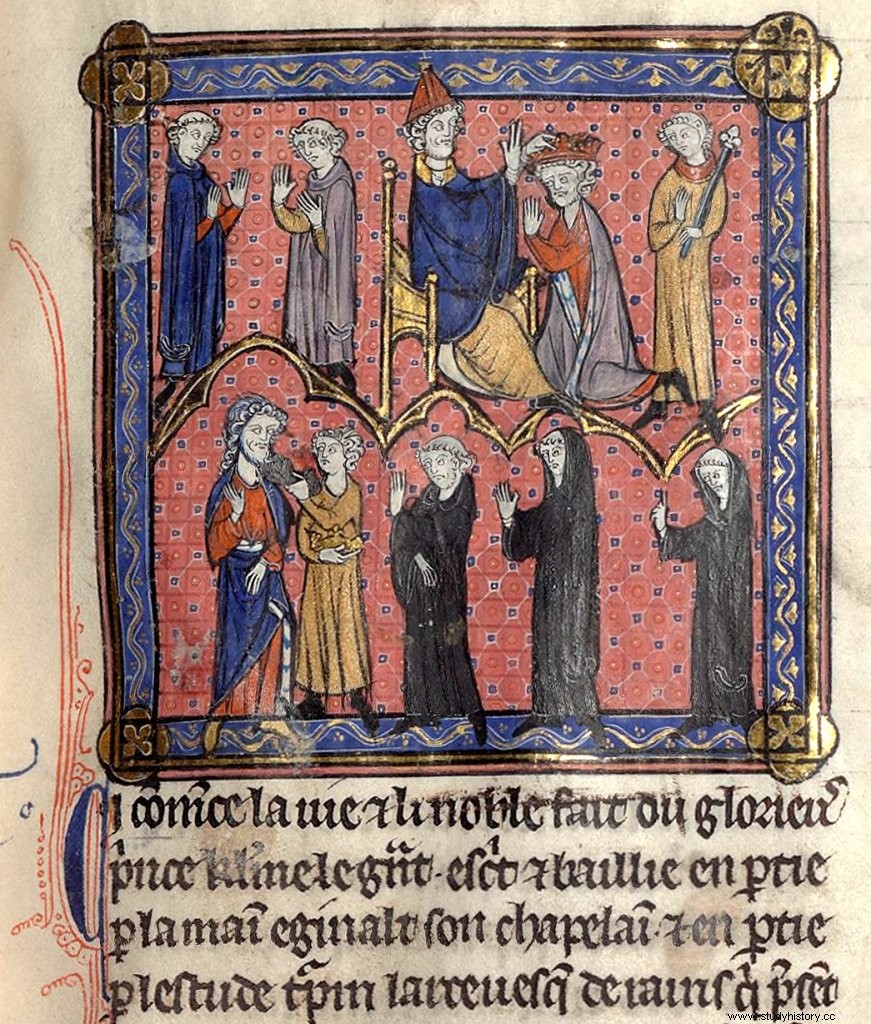 Ci cōmēce la uie ⁊ li noble fait du glorieus
p̄nce kl̄mele gn̄t. esct̄ ⁊ baillie en ꝑtie
ꝑ la maī eginalt son chapelaī. ⁊ en ꝑtie
ꝑ lestude tꝑin larceuesq̄ de rains q̄ p̄sēt
www.studyhistory.cc